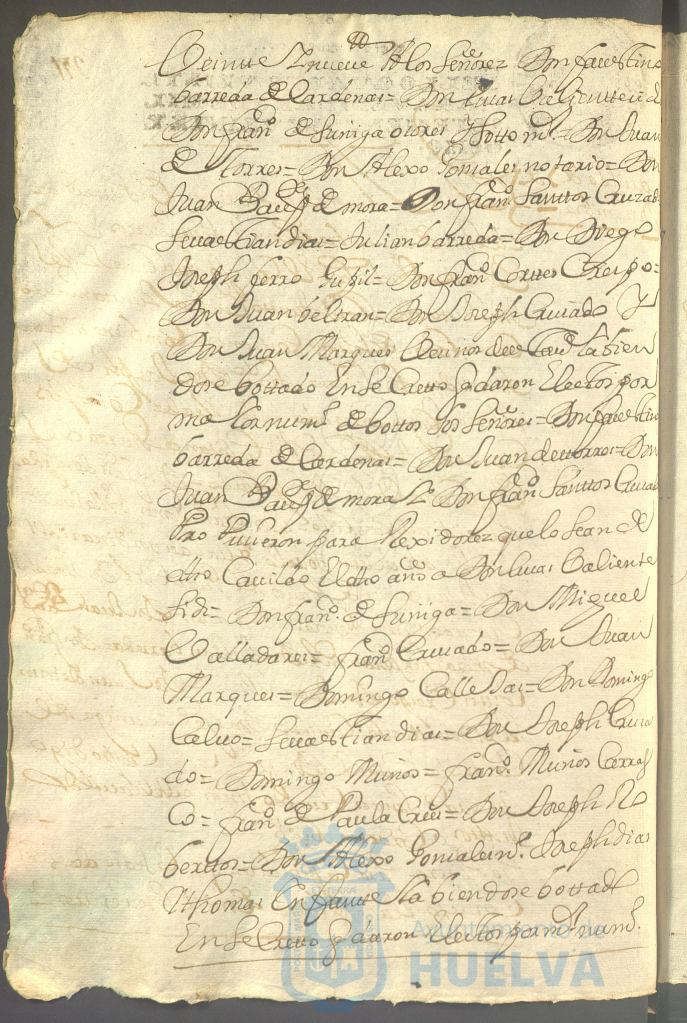 Veinte Y nueve A los Señores Don faustino
barreda de Cardenas= Don Lucas Valiente
Don franco. de suniga Don Juan
de Torres= Don Alexo Gonzales notario= Don
Juan Bauta. de mora= Don franco. Santtos Cruzado
Sevastian dias= Julian barreda= Don Diego
Joseph ferro Don franco. Corttes Crespo=
Don Juan beltran= Don Joseph Cruzado Y
Don Juan Marques Vecinos de esta Va. Y abien
dose bottado En se Cretto quedaron Electos por
maior numo. de bottos los Señores= Don faustino
barreda de Cardenas= Don Juan de ttorres= Don
Juan Bauta. de mora Y Don franco. Santtos Cruzado
Pro Pusieron para Rexidorez que lo sean de
dho Cavildo El dho año a Don Lucas Valiente
Don franco. de suniga= Don Miguel
Valladares= franco. Cruzado= Don Juan
Marques= Domingo Calle Don Domingo
Calvo= Sevastian dias= Don Joseph Cruza
do= Domingo Muños= franco. Muños Carras
co= franco. de Paula Cruz= Don Joseph Ro
bertos= Don Alexo Gonzales no. Joseph dias
Y thomas Infante Y a biendose bottado
En se Cretto quedaron Electos por mor. numo.
Ayuntamiento de
HUELVA